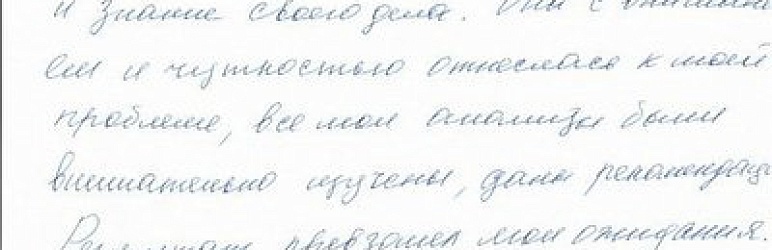 и знание своего дела. Они с внимани
ем и чуткостью отнеслась к моей
проблеме, все мои анализы были
внимательно изучены, даны рекомендаци
Результат превзошел мои ожидания.